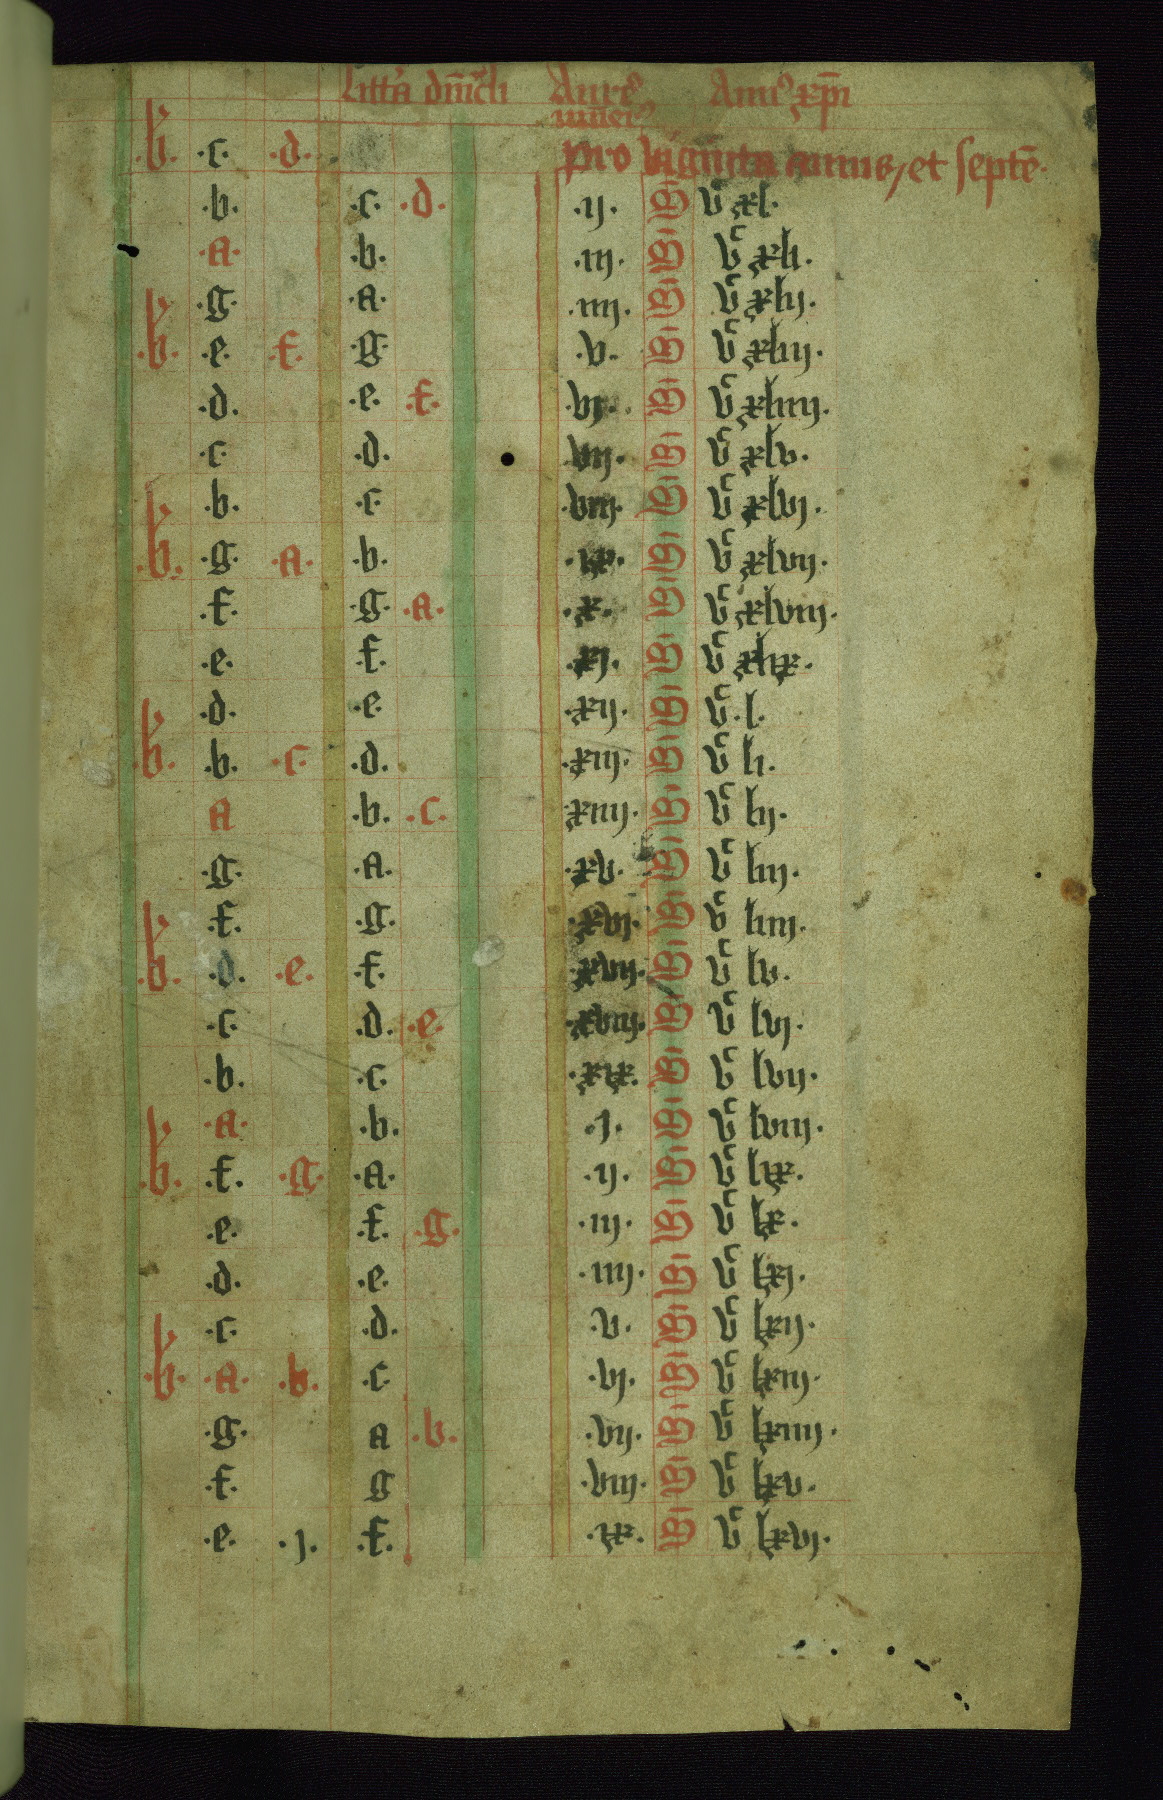 Litt̄a dn̄icli Aure9 Ann9 xp̄i
nūei9
.b. .c. .d. Pro viginta annis, et septē.
.b. .c. .d. .ij. vͨ xl.
.A. .b. .iij. vͨ xli.
.g. .A. .iiij. vͨ xlij.
.b. .e. .f. .g. .v. vͨ xliij.
.d. .e. .f. .vj. vͨ xliiij.
.c. .d. .vij. vͨ xlv.
.b. .c. .viij. vͨ xlvj.
.b. .g. .A. .b. .ix. vͨ xlvij.
.f. .g. .A. .x. vͨ xlviij.
.e. .f. .xj. vͨ xlix.
.d. .e. .xij. vͨ .l.
.b. .b. .c. .d. .xiij. vͨ li.
A .b. .c. .xiiij. vͨ lij.
.g. .A. .xv. vͨ liij.
.f. .g. .xvj. vͨ liiij.
.b. .d. .e. .f. .xvij. vͨ lv.
.c. .d. .e. .xviij. vͨ lvj.
.b. .c. .xix. vͨ lvij.
.A. .b. .j. vͨ lviij.
.b. .f. .g. .A. .ij. vͨ lix.
.e. .f. .g. .iij. vͨ lx.
.d. .e. .iiij. vͨ lxj.
.c. .d. .v. vͨ lxij.
.b. .A. .b. .c. .vj. vͨ lxiij.
.g. A .b. .vij. vͨ lxiiij.
.f. g .viij. vͨ lxv.
.e. .j. .f. .ix. vͨ lxvj.